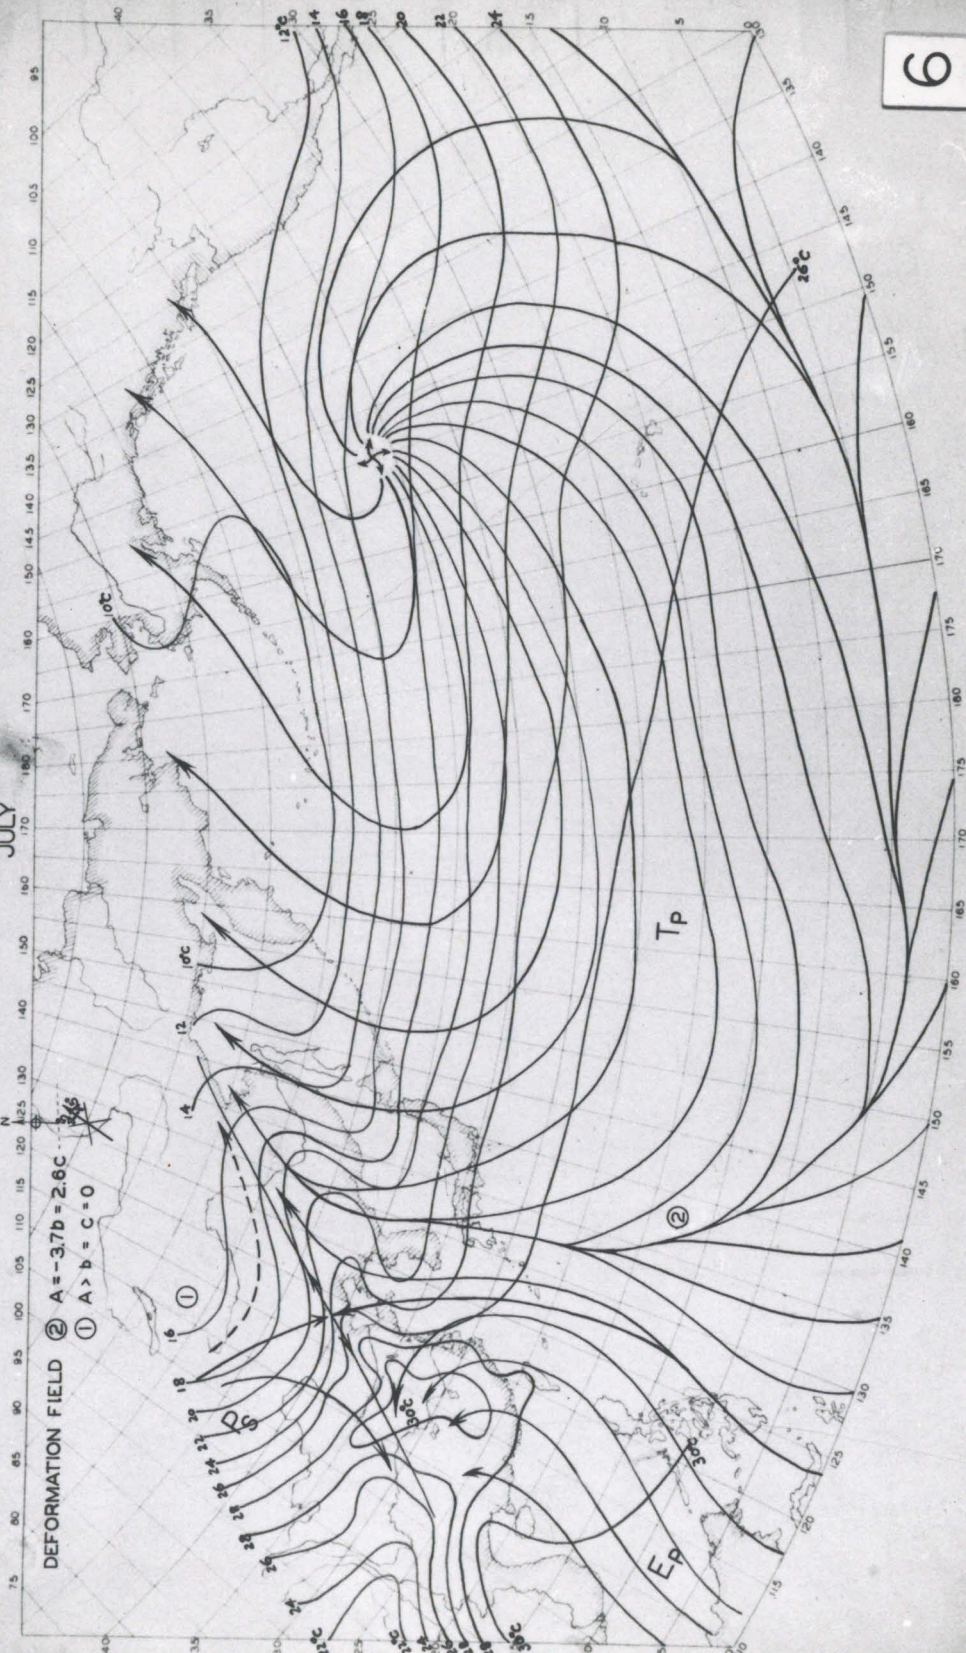 JULY
6
N
DEFORMATION FIELD ② A = -3.7b = 2.6C
① A > b = C = 0
75 80 85 90 95 100 105 110 115 120 125 130 140 150 160 170 180 170 160 150 145 140 135 130 125 120 115 110 105 100 95
40 35 30 25 20 15 10 5
12°C 14 16 18 20 22 24
10°C
10°C
12
14
16
18
20
22
24
26
28
28
26
24
22°C
22°C
24
26
28
30°C
30°C
30°C
26°C
①
②
Ps
Tp
Ep
115 120 125 130 135 140 145 150 155 160 165 170 175 180 175 170 165 160 155 150 145 140 135